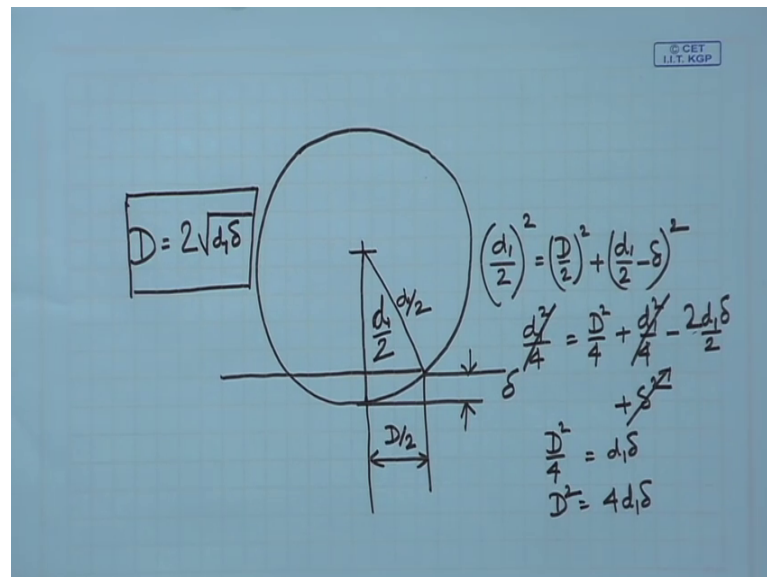 © CET
I.I.T. KGP
D = 2√d₁δ
d₁/2
d₁/2
D/2
δ
(d₁/2)² = (D/2)² + (d₁/2 - δ)²
d₁²/4 = D²/4 + d₁²/4 - 2d₁δ/2
+ δ²
D²/4 = d₁δ
D² = 4d₁δ